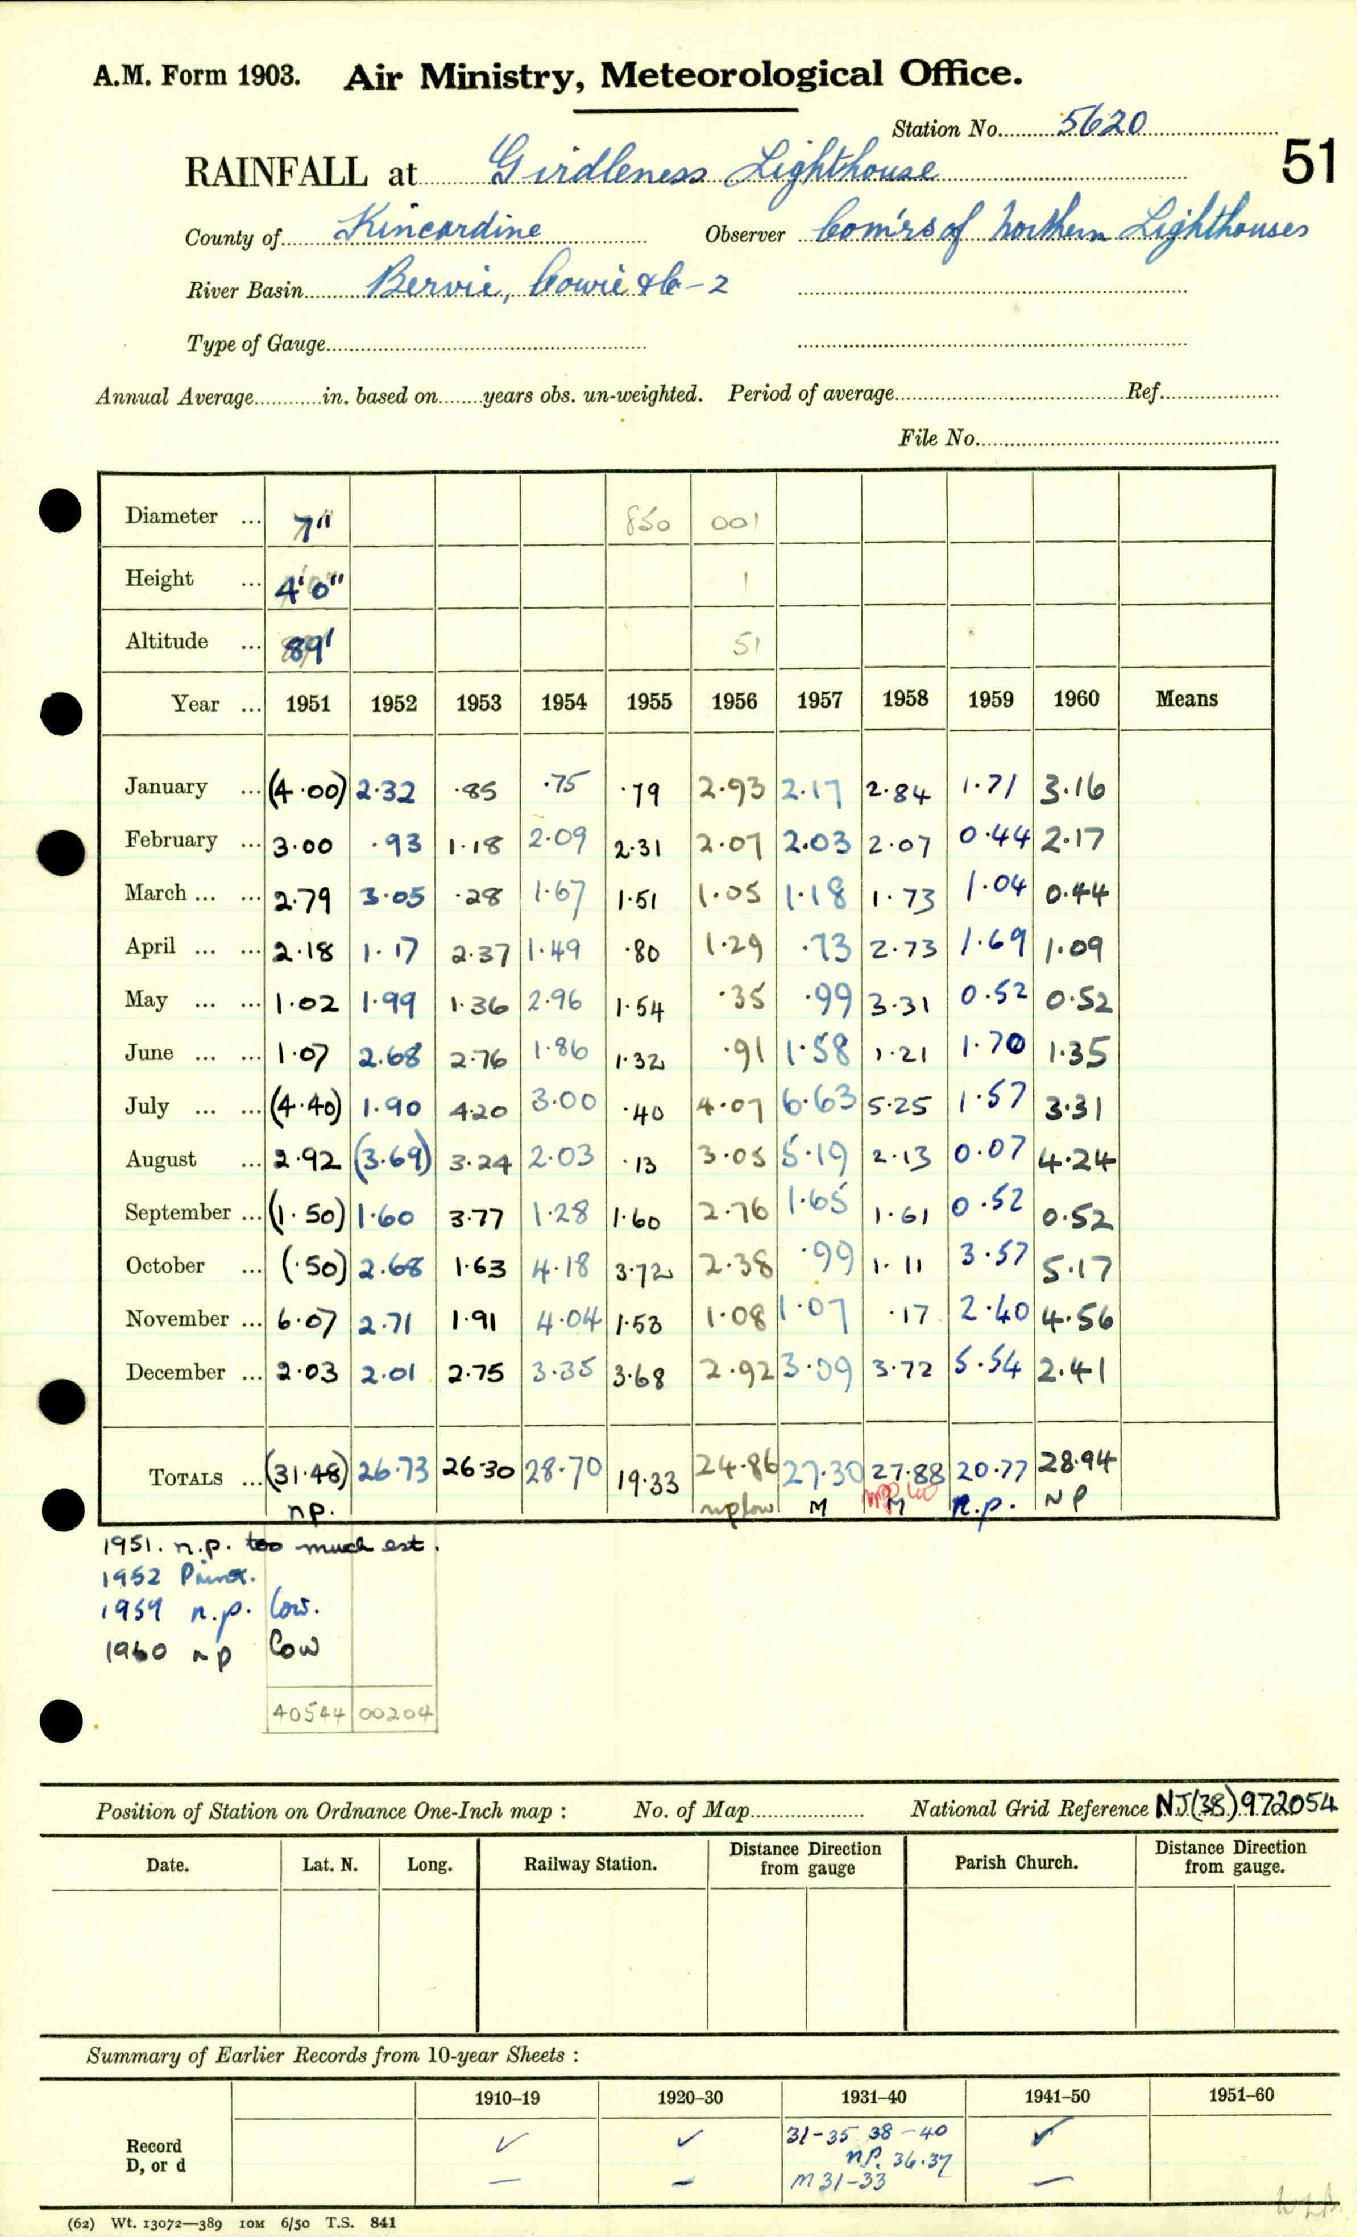 A.M. Form 1903. Air Ministry, Meteorological Office.
Station No. 5620
51
RAINFALL at Girdleness Lighthouse
County of Kincardine Observer Com'rs of Northern Lighthouses
River Basin Bervie, Cowie &c - 2
Type of Gauge
Annual Average in. based on years obs. un-weighted. Period of average Ref.
File No.
Diameter ... 7" 850 001
Height ... 4'0" 1
Altitude ... 89' 51
Year ... 1951 1952 1953 1954 1955 1956 1957 1958 1959 1960 Means
January ... (4.00) 2.32 .85 .75 .79 2.93 2.17 2.84 1.71 3.16
February ... 3.00 .93 1.18 2.09 2.31 2.07 2.03 2.07 0.44 2.17
March ... ... 2.79 3.05 .28 1.67 1.51 1.05 1.18 1.73 1.04 0.44
April ... ... 2.18 1.17 2.37 1.49 .80 1.29 .73 2.73 1.69 1.09
May ... ... 1.02 1.99 1.36 2.96 1.54 .35 .99 3.31 0.52 0.52
June ... ... 1.07 2.68 2.76 1.86 1.32 .91 1.58 1.21 1.70 1.35
July ... ... (4.40) 1.90 4.20 3.00 .40 4.07 6.63 5.25 1.57 3.31
August ... 2.92 (3.69) 3.24 2.03 .13 3.05 5.19 2.13 0.07 4.24
September ... (1.50) 1.60 3.77 1.28 1.60 2.76 1.65 1.61 0.52 0.52
October ... (.50) 2.68 1.63 4.18 3.72 2.38 .99 1.11 3.57 5.17
November ... 6.07 2.71 1.91 4.04 1.53 1.08 1.07 .17 2.40 4.56
December ... 2.03 2.01 2.75 3.35 3.68 2.92 3.09 3.72 5.54 2.41
TOTALS ... (31.48) 26.73 26.30 28.70 19.33 24.86 27.30 27.88 20.77 28.94
np. np low M M n.p. NP
1951. n.p. too much est.
1952 Print.
1959 n.p. low.
1960 np low
40544 00204
Position of Station on Ordnance One-Inch map : No. of Map National Grid Reference NJ(38)972054
Date. Lat. N. Long. Railway Station. Distance Direction from gauge Parish Church. Distance Direction from gauge.
Summary of Earlier Records from 10-year Sheets :
1910–19 1920–30 1931–40 1941–50 1951–60
Record D, or d ✓ ✓ 31-35 38-40 ✓
np. 36.37
— — M 31-33 —
(62) Wt. 13072—389 10M 6/50 T.S. 841